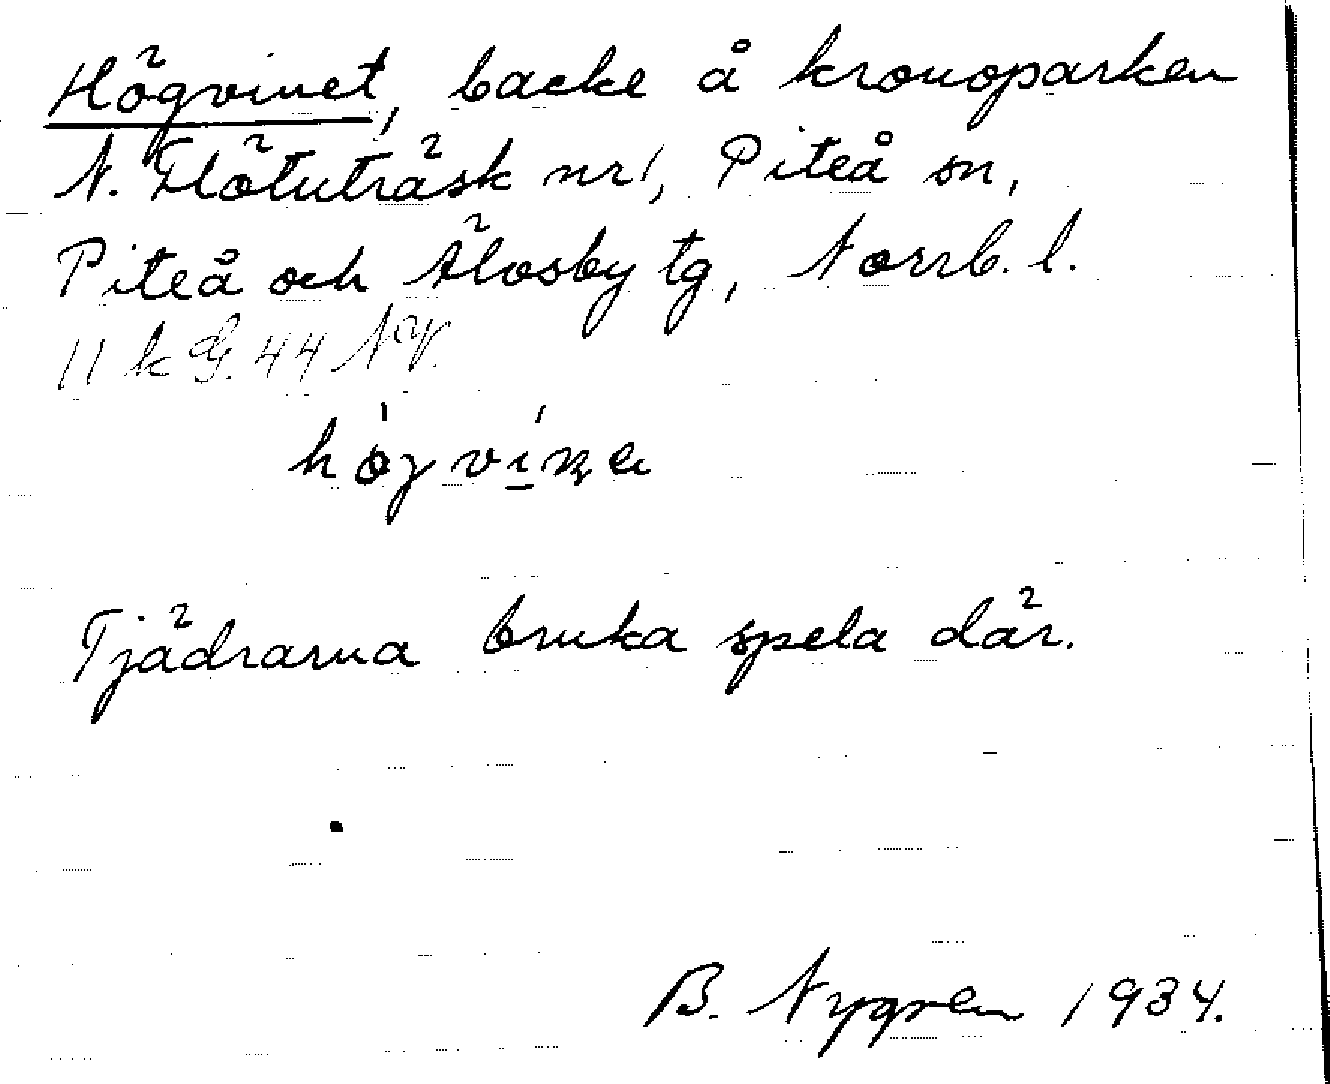 Högvinet, backe å kronoparken
N. Flötuträsk nr 1, Piteå sn,
Piteå och Älvsby tg, Norrb. l.
11 k G. 44 NV.
Tjädrarna bruka spela där.
B. Nygren 1934.